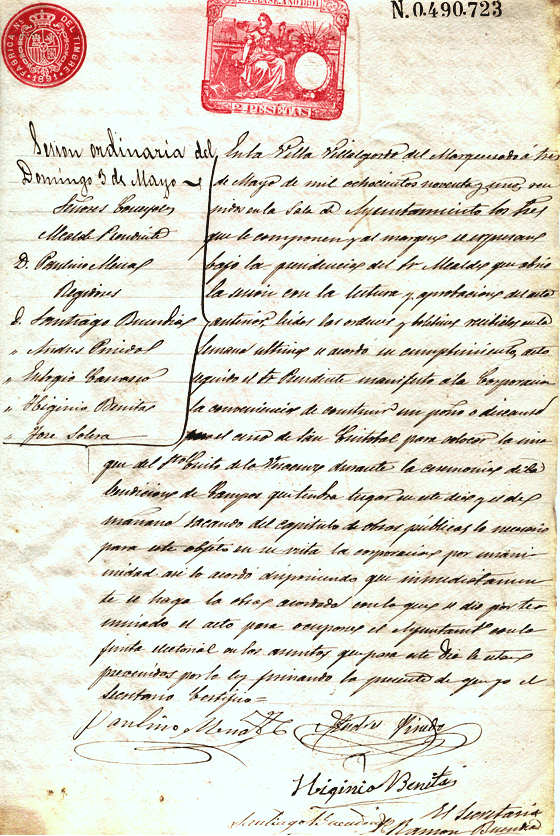 FABRICA NAL DEL TIMBRE
1891
AÑO 1891
2 PESETAS
N. 0.490.723
Sesion ordinaria del
Domingo 3 de Mayo
Señores Concejales
Alcalde Presidente
D. Paulino Mena
Regidores
D. Santiago Buendia
" Andres Pinedo
" Eulogio Carrasco
" Higinio Benitas
" Jose Solera
En la Villa Villalgordo del Marquesado a tres
de Mayo de mil ochocientos noventa y uno, reu
nidos en la Sala de Ayuntamiento los Sres
que le componen y al margen se expresan
bajo la presidencia del Sr Alcalde que abrio
la sesion con la lectura y aprobacion del acta
anterior, leidas las ordenes y boletines recibidos en la
semana ultima se acordo su cumplimiento, acto
seguido el Sr Presidente manifesto a la Corporacion
la conveniencia de construir un poyo o descanso
en el cerro de San Cristobal para colocar la ima
gen del Sto Cristo de la Veracruz durante la ceremonia de la
bendicion de Campos que tendra lugar en este dia y el de
mañana sacando del capitulo de obras públicas lo necesario
para este objeto en su vista la corporacion por unani
midad asi lo acordó disponiendo que inmediatamen
te se haga la obra acordada con lo que se dio por ter
minado el acto para ocuparse el Ayuntamto con la
junta electoral en los asuntos que para este dia le estan
prevenidos por la ley firmando la presente de que yo el
secretario Certifico =
Paulino Mena
Andres Pinedo
Higinio Benitas
Santiago Buendia
El Secretario
Ramon Buendia